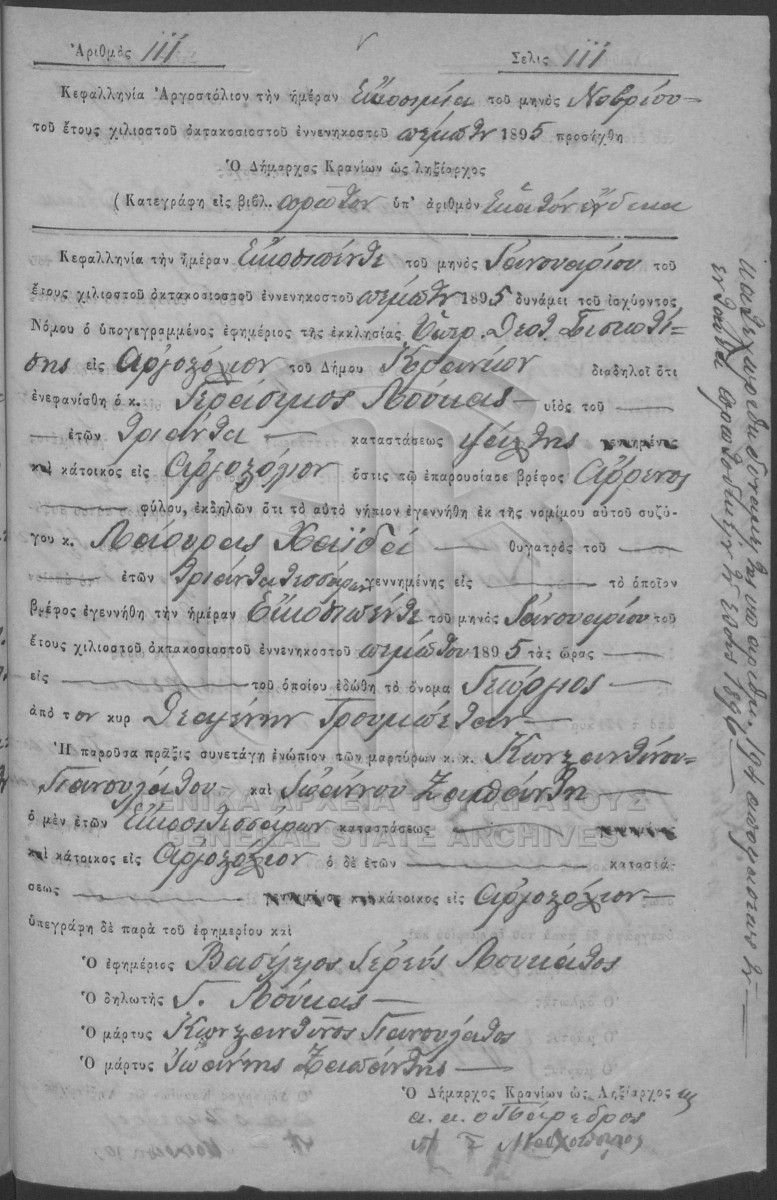 Ἀριθμὸς 111 Σελις 111
Κεφαλληνία Ἀργοστόλιον τὴν ἡμέραν Εἰκοσιμία τοῦ μηνὸς Νοβρίου
τοῦ ἔτους χιλιοστοῦ ὀκτακοσιοστοῦ ἐννενηκοστοῦ πέμπτου 1895 προσήχθη
Ὁ Δήμαρχος Κρανίων ὡς ληξίαρχος
(Κατεγράφη εἰς βιβλ. πρῶτον ὑπ' ἀριθμὸν Ἑκατόν ἕνδεκα
Κεφαλληνία τὴν ἡμέραν Εἰκοσιπέντε τοῦ μηνὸς Ἰανουαρίου τοῦ
ἔτους χιλιοστοῦ ὀκτακοσιοστοῦ ἐννενηκοστοῦ πέμπτου 1895 δυνάμει τοῦ ἰσχύοντος
Νόμου ὁ ὑπογεγραμμένος ἐφημέριος τῆς ἐκκλησίας Ὑπερ. Θεοτ. Σισιωτί-
σης εἰς Ἀργοστόλιον τοῦ Δήμου Κρανίων διαδηλοῖ ὅτι
ἐνεφανίσθη ὁ κ. Γεράσιμος Λούκας υἱὸς τοῦ
ἐτῶν τριάντα καταστάσεως γεννημένος
καὶ κάτοικος εἰς Ἀργοστόλιον ὅστις τῷ ἐπαρουσίασε βρέφος Ἄρρενος
φύλου, ἐκδηλῶν ὅτι τὸ αὐτὸ νήπιον ἐγεννήθη ἐκ τῆς νομίμου αὐτοῦ συζύ-
γου κ. Λάουρας Χαϊδᾶ θυγατρὸς τοῦ
ἐτῶν Τριάντατεσσάρων γεννημένης εἰς τὸ ὁποῖον
βρέφος ἐγεννήθη τὴν ἡμέραν Εἰκοσιπέντε τοῦ μηνὸς Ἰανουαρίου τοῦ
ἔτους χιλιοστοῦ ὀκτακοσιοστοῦ ἐννενηκοστοῦ πέμπτου 1895 τὰς ὥρας
εἰς τοῦ ὁποίου ἐδώθη τὸ ὄνομα Γεώργιος
ἀπὸ τον κυρ Θεαγένην
Ἡ παροῦσα πρᾶξις συνετάγη ἐνώπιον τῶν μαρτύρων κ. κ. Κωνσταντίνου
Πανουλάτου καὶ Ἰωάννου Ζαπάντη
ὁ μὲν ἐτῶν Εἰκοσιτεσσάρων καταστάσεως
καὶ κάτοικος εἰς Ἀργοστόλιον ὁ δὲ ἐτῶν καταστά-
σεως γεννημένος καὶ κάτοικος εἰς Ἀργοστόλιον
ὑπεγράφη δὲ παρὰ τοῦ ἐφημερίου καὶ
Ὁ ἐφημέριος Βασίλειος Ἱερεύς Λουκάτος
Ὁ δηλωτὴς Γ. Λούκας
Ὁ μάρτυς Κωνσταντῖνος Πανουλάτος
Ὁ μάρτυς Ἰωάννης Ζαπάντης
Ὁ Δήμαρχος Κρανίων ὡς Ληξίαρχος
α. α. ο Πάρεδρος
ΓΕΝΙΚΑ ΑΡΧΕΙΑ ΤΟΥ ΚΡΑΤΟΥΣ
GENERAL STATE ARCHIVES